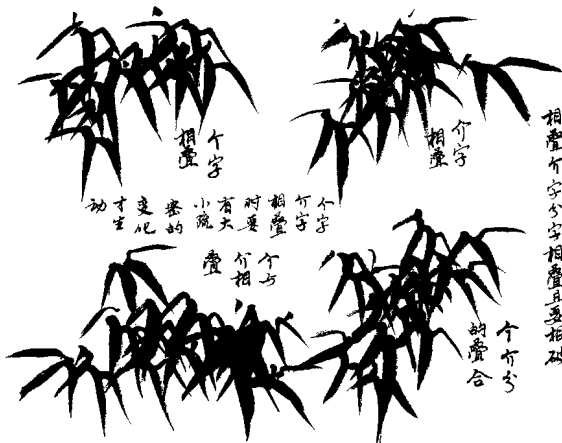 相叠介字分字相叠且要相破
介字
相叠
个字
相叠
个字
介字
相叠
时要
有大
小疏
密的
变化
才生
动
个与
介相
叠
个介分
的叠合